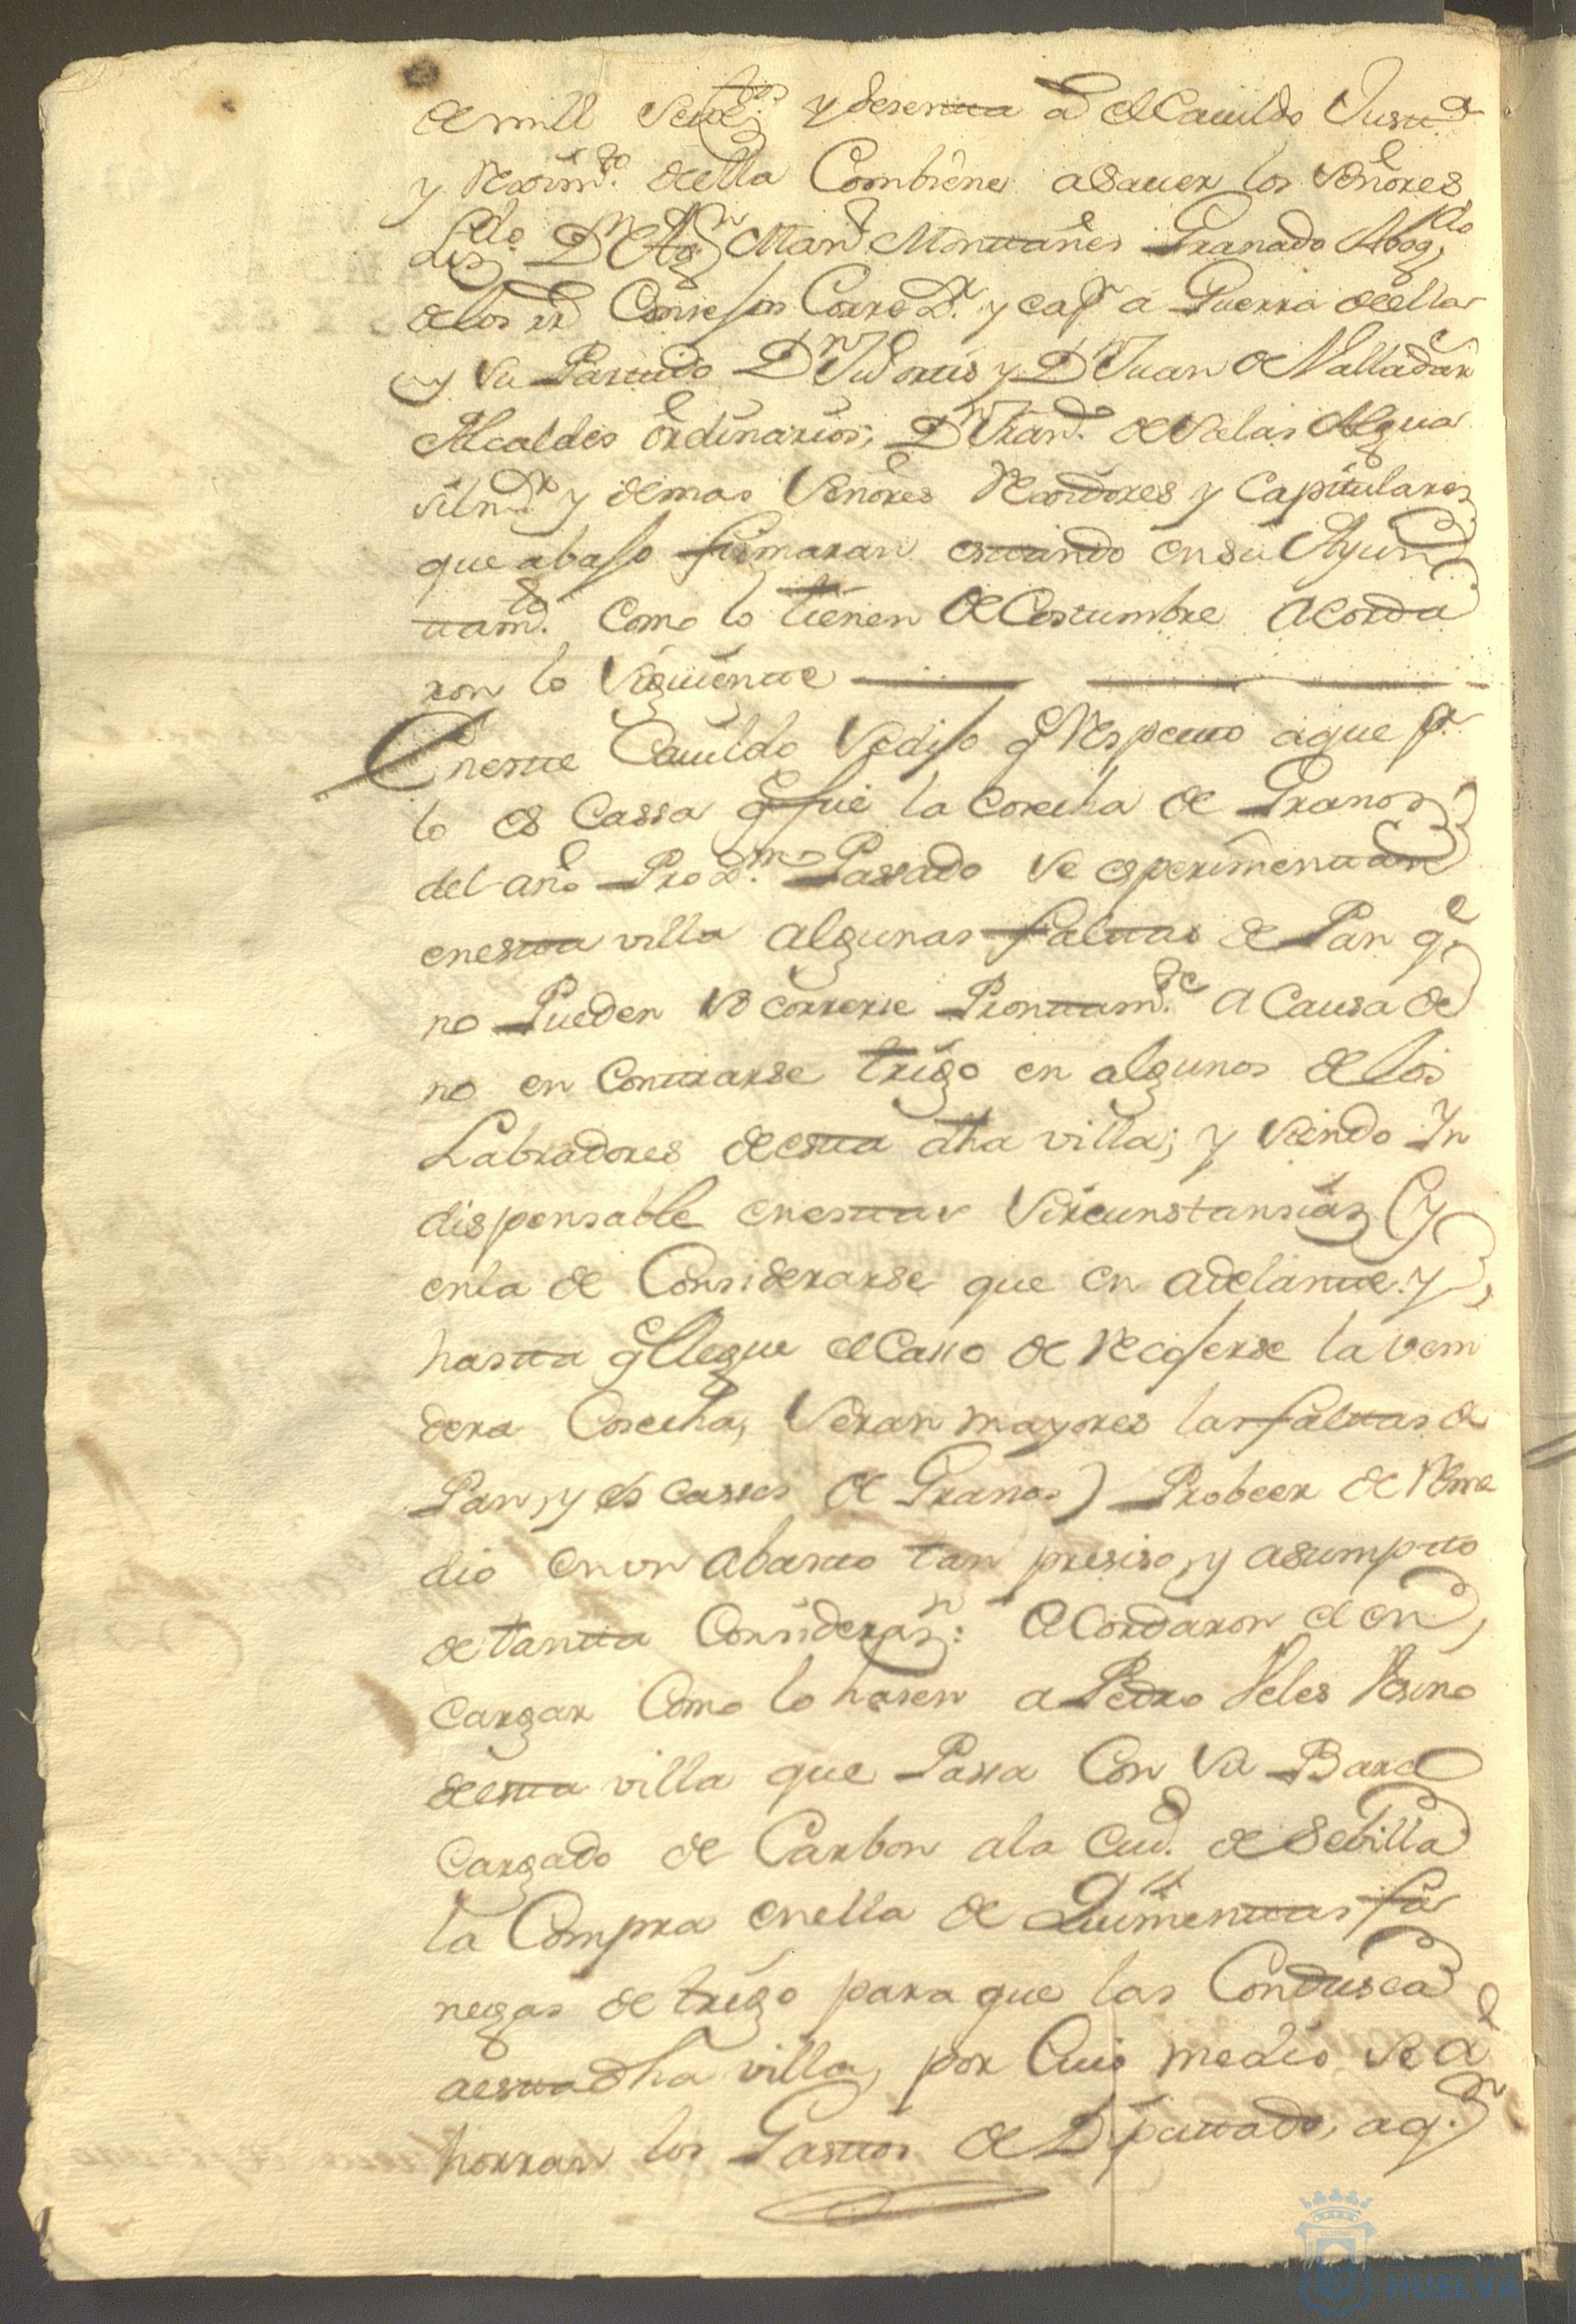 de mill setez.tos y sesenta a el Cauildo Just.a
y Reximi.to della Combiene a sauer los Señores
Liz.do D.n Ag.n Man.l Montañes Granado Abog.do
de los R.s Consejos Corre.Dr y cap.n a Guerra della
y su Partido D.n Ju.o ortis y D.n Juan de Valladar
Alcaldes ordinarios; D.n Fran.co de Salas Algua
sil m.or y demas Señores Rexidores y Capitulares
que abajo firmaran estando en su Ayun
tam.to Como lo tienen de Costumbre Acorda
ron lo siguiente
En este Cauildo se dijo q Respecto a que p.r
lo es Cassa q fue la Cosecha de Granos
del año Prox.mo Passado se esperimentan
en esta villa algunas faltas de Pan q.e
no Pueden socorrerse Prontam.te a Causa de
no en Contrarse trigo en algunos de los
Labradores de esta dha villa; y siendo In
dispensable en estas sircunstansias (y
en la de Considerarse que en adelante y
hasta q llegue el Casso de Recojerse la vem
dera Cosecha, seran mayores las faltas de
Pan, y es casses de Granos) Probeer de Reme
dio en un abasto tan presiso, y asumpto
de tanta Consideras.n: Acordaron el en
cargar Como lo hasen a Pedro Veles Vesino
de esta villa que Passa Con su Barco
Cargado de Carbon a la Ciud.d de Sebilla
la Compra en ella de Quinientas fa
negas de trigo para que las Condusca
a esta dha villa, por Cuio medio se a
horran los Gastos de Diputado, a q.n
HUELVA